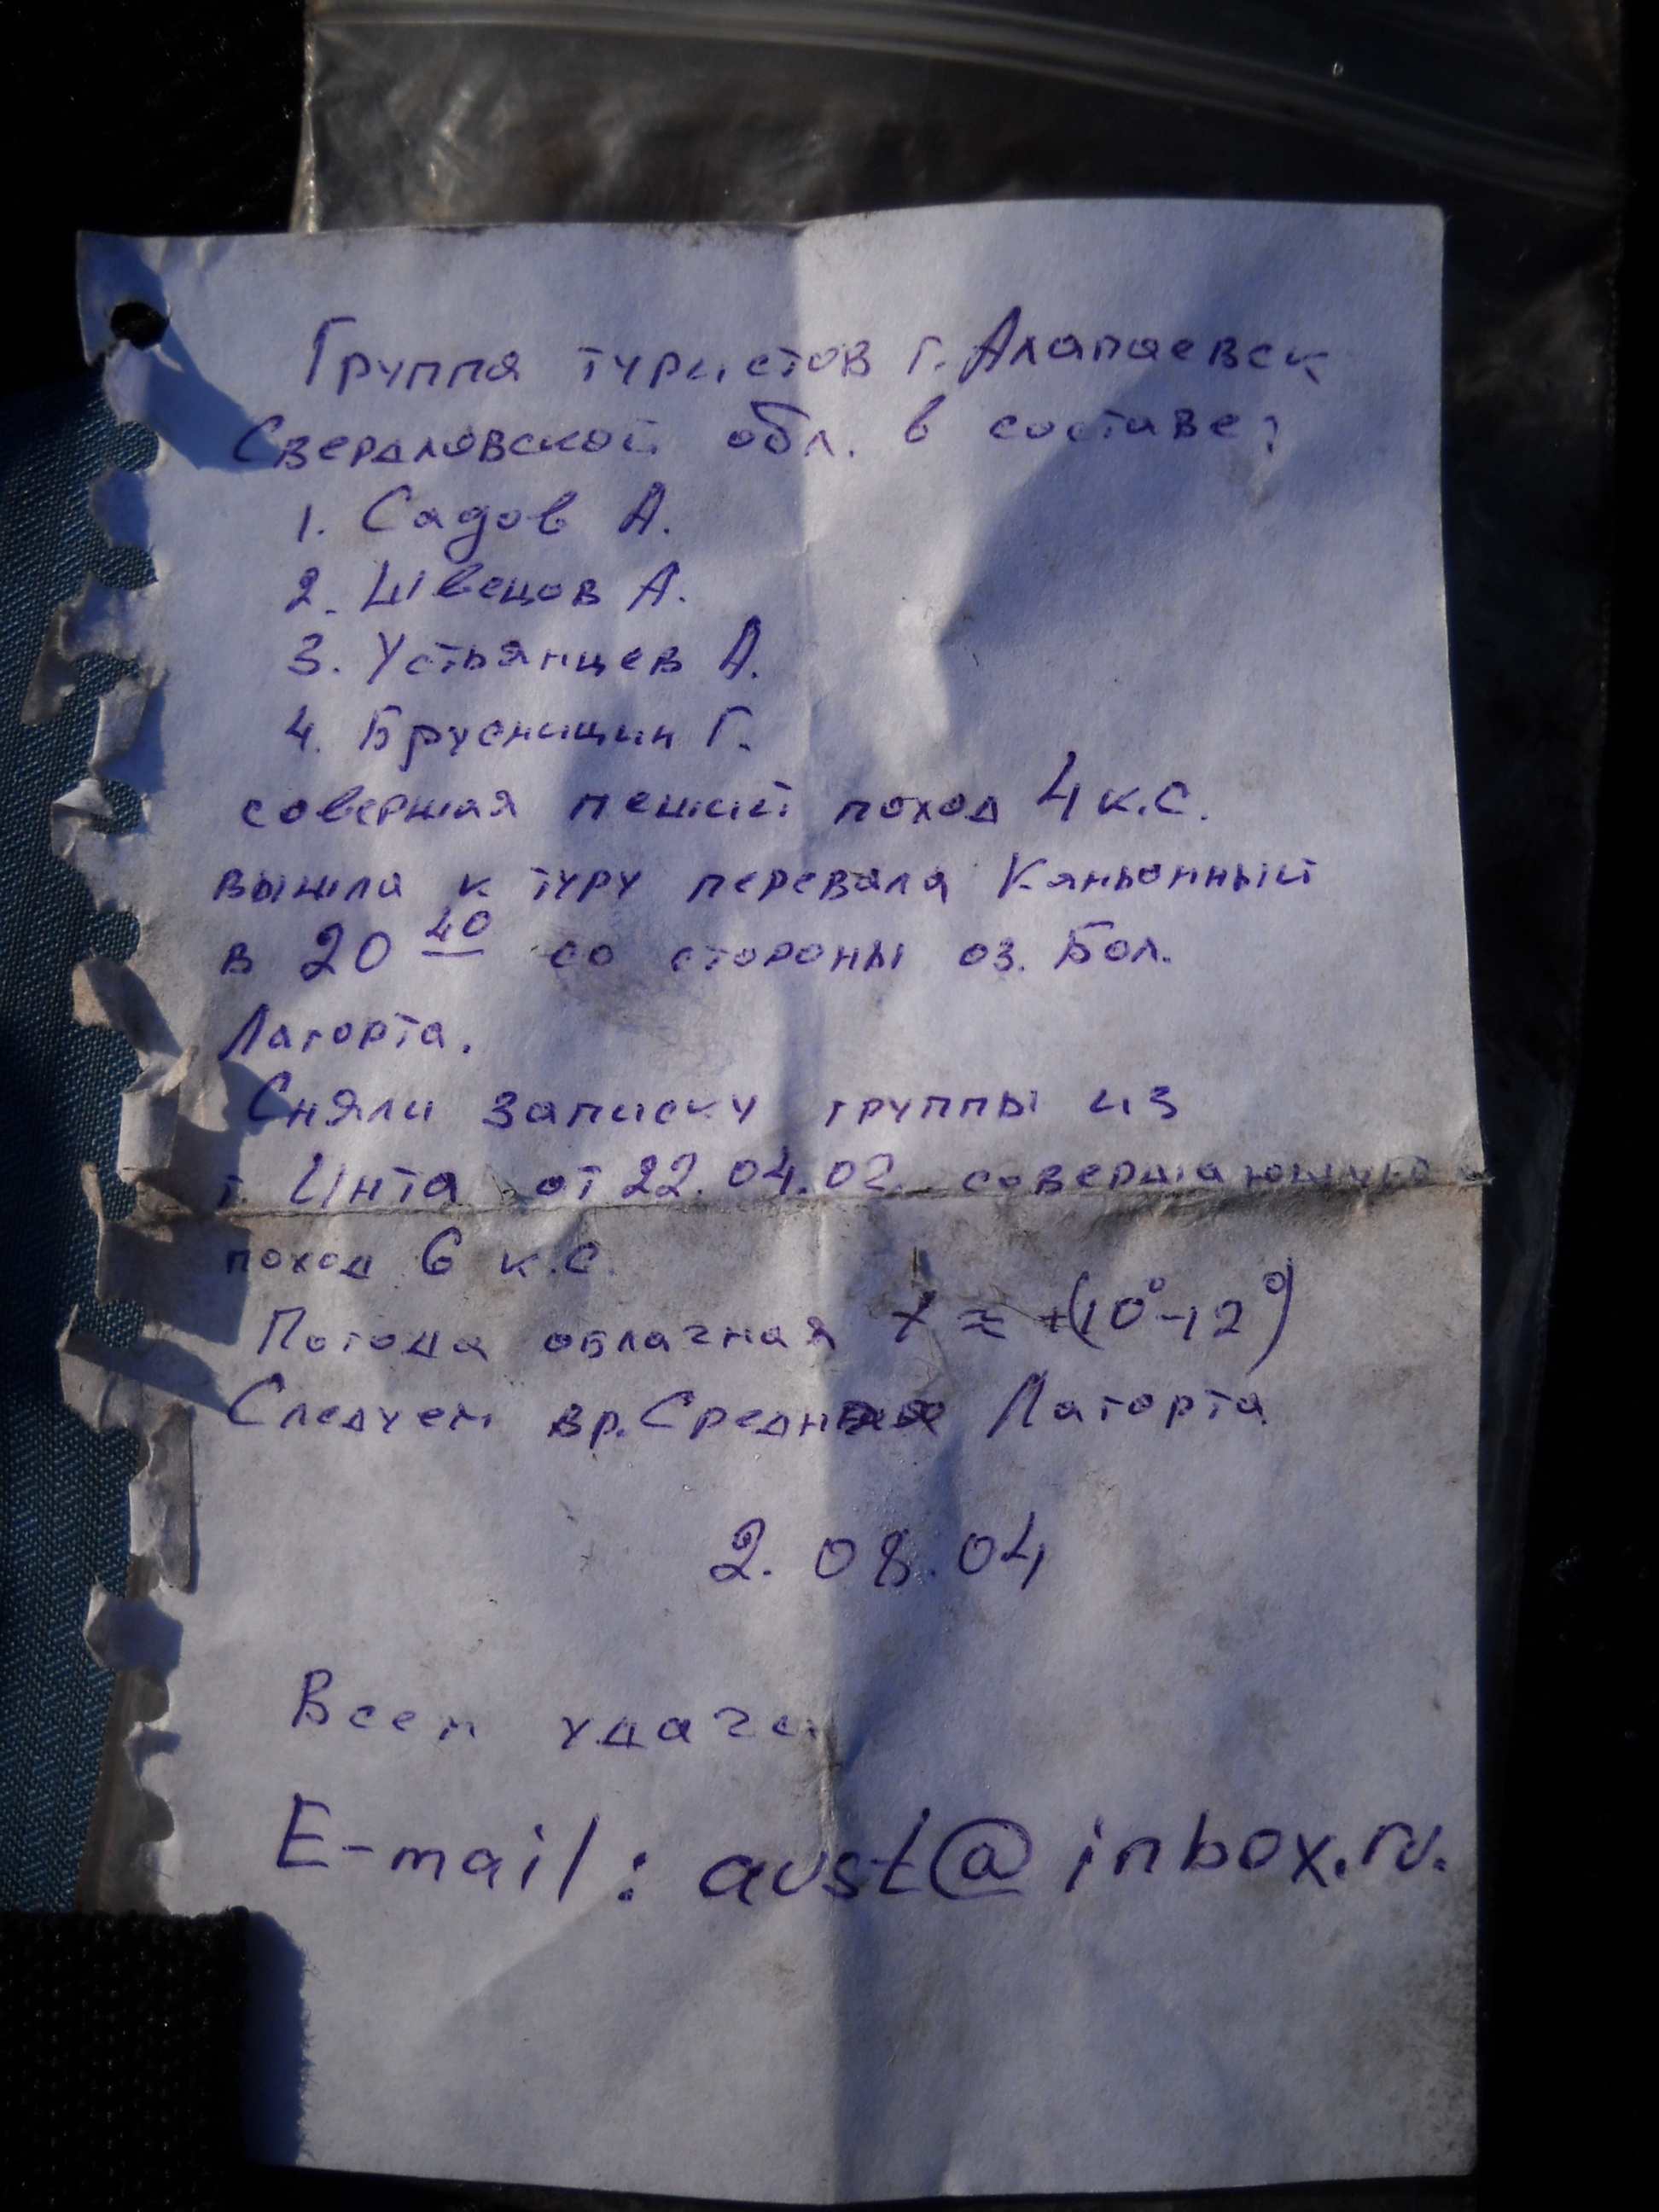 Группа туристов г. Алапаевск
Свердловской обл. в составе:
1. Садов А.
2. Швецов А.
3. Устьянцев А.
4. Брусницин Г.
совершая пеший поход 4 к.с.
вышла к туру перевала Каньонный
в 20 40 со стороны оз. Бол.
Лагорта.
Сняли записку группы из
г. Инта от 22.04.02 совершающую
поход 6 к.с.
Погода облачная t ≈ +(10°-12°)
Следуем в р. Средняя Лагорта
2.08.04
Всем удачи
E-mail: aust@inbox.ru.